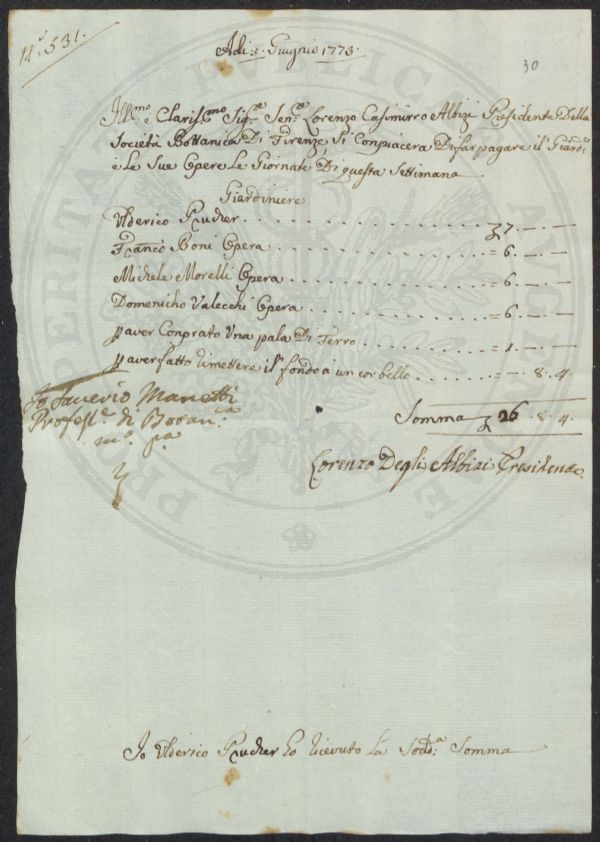 N.° 531.
Adi 5. Giugnio 1773.
30
Ill.mo e Claris.mo Sig.e Sen.e Lorenzo Casimirro Albizi Presidente Della
Società Bottanica Di Firenze, Si Conpiacera Di far pagare il Giard.e
e Le Sue Opere Le Giornate Di questa Settimana
Giardiniere
Ulderico Prucker . . . 7. — . —
Franco Boni Opera . . . = 6. — . —
Michele Morelli Opera . . . = 6. — . —
Domenicho Valecchi Opera . . . = 6. — . —
p aver Conprato Una pala Di Ferro . . . = 1. — . —
p aver fatto rimettere il fondo a un corbello . . . = — . 8. 4.
Io Saverio Manetti
Profess.e di Botan.ca
m.o p.a
Somma 26. 8. 4.
Lorenzo Degli Albizi Presidente
Io Ulderico Prucker ho ricevuto La Sod.a Somma
PROSPERITATI PVBLICAE AVGENDAE